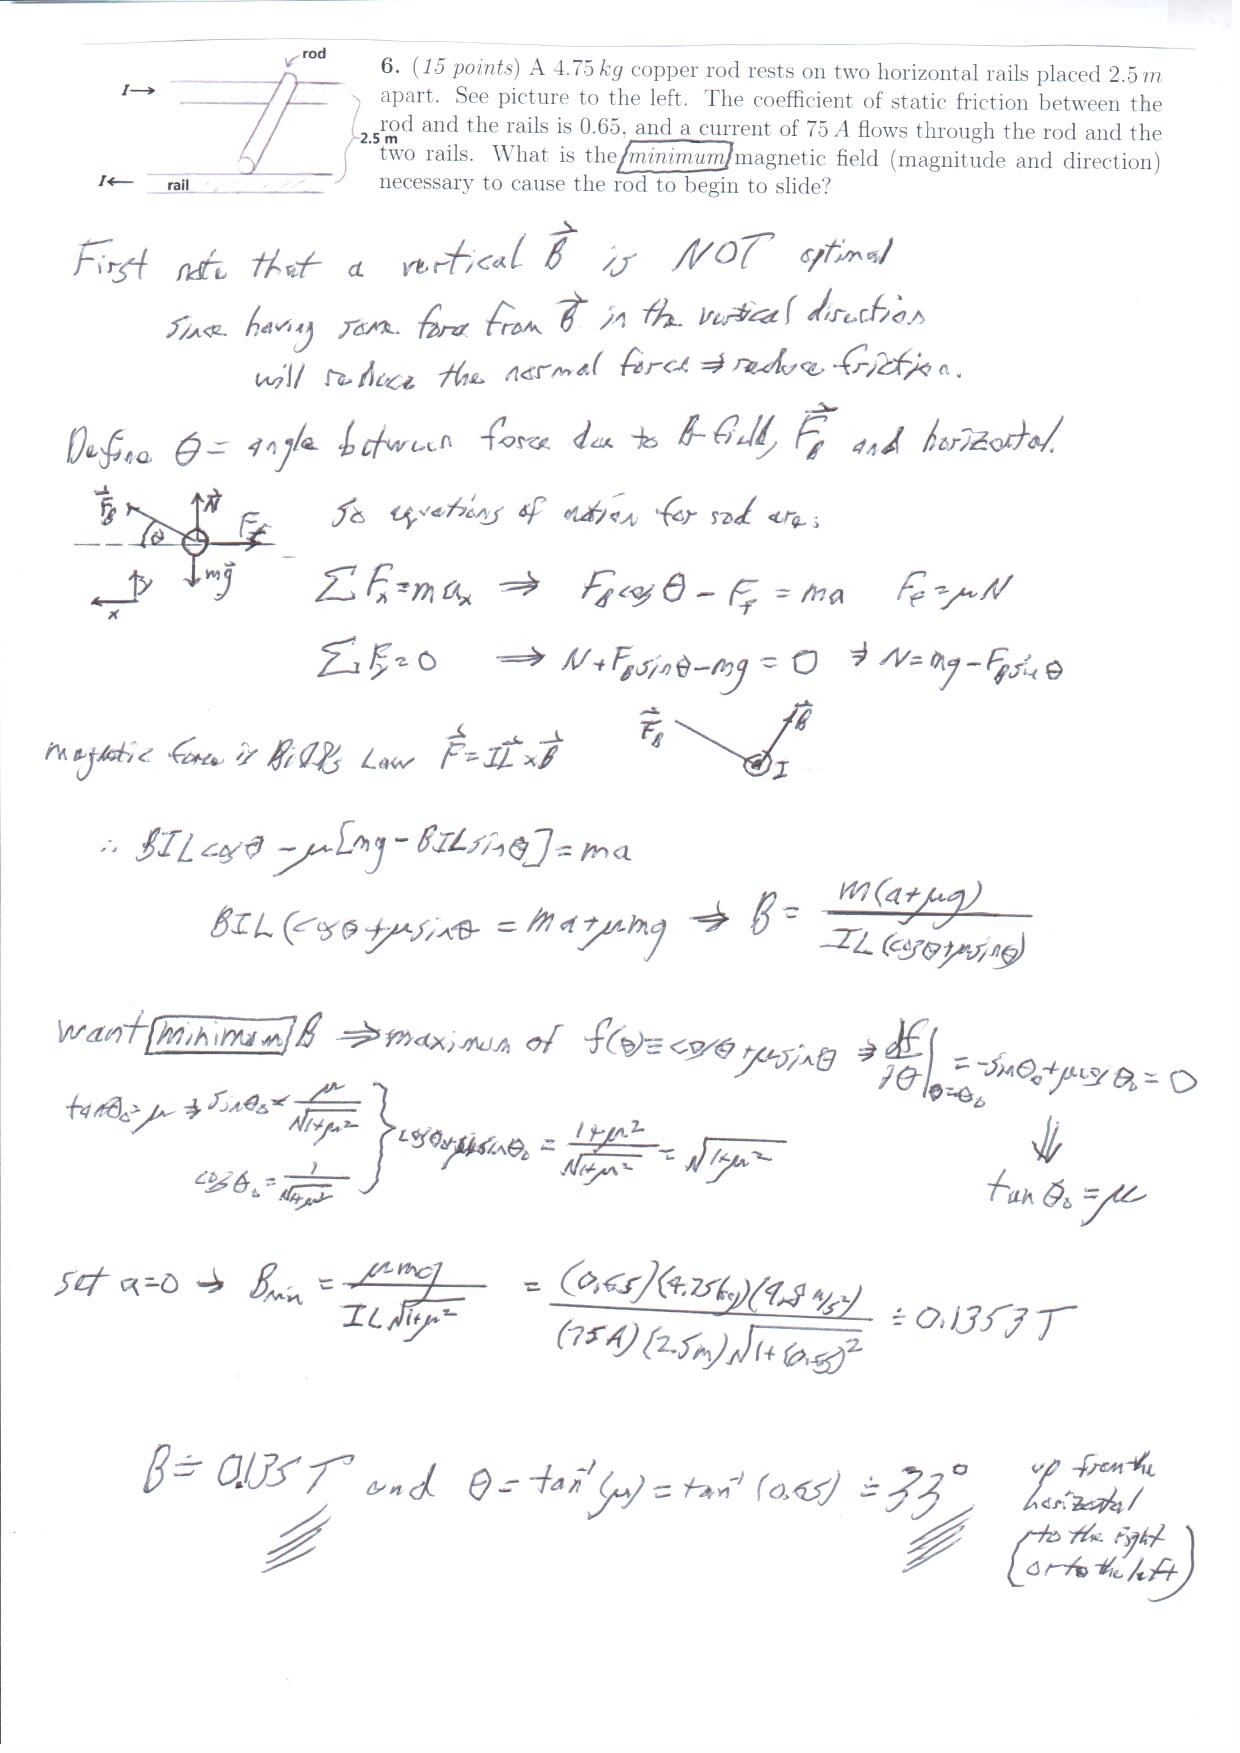 rod
I→
2.5 m
I←
rail
6. (15 points) A 4.75 kg copper rod rests on two horizontal rails placed 2.5 m
apart. See picture to the left. The coefficient of static friction between the
rod and the rails is 0.65, and a current of 75 A flows through the rod and the
two rails. What is the minimum magnetic field (magnitude and direction)
necessary to cause the rod to begin to slide?
First note that a vertical B⃗ is NOT optimal
since having some force from B⃗ in the vertical direction
will reduce the normal force ⇒ reduce friction.
Define θ = angle between force due to B-field, F⃗_B and horizontal.
F⃗_B θ N⃗ F_f
mg⃗ y x
So equations of motion for rod are:
ΣF_x = ma_x ⇒ F_B cosθ - F_f = ma F_f = μN
ΣF_y = 0 ⇒ N + F_B sinθ - mg = 0 ⇒ N = mg - F_B sinθ
F⃗_B B⃗ I
magnetic force is Law F⃗ = IL⃗ × B⃗
∴ BIL cosθ - μ[mg - BIL sinθ] = ma
BIL (cosθ + μ sinθ = ma + μmg ⇒ B = m(a + μg) / IL (cosθ + μ sinθ)
want minimum B ⇒ maximum of f(θ) ≡ cosθ + μ sinθ ⇒ df/dθ |θ=θ₀ = -sinθ₀ + μ cosθ₀ = 0
tanθ₀ = μ ⇒ sinθ₀ = μ/√(1+μ²)
cosθ₀ = 1/√(1+μ²)
} cosθ₀ + μ sinθ₀ = (1+μ²)/√(1+μ²) = √(1+μ²)
⇓
tan θ₀ = μ
set a=0 → B_min = μmg / IL√(1+μ²) = (0.65)(4.75kg)(9.8 m/s²) / (75A)(2.5m)√(1+(0.65)²) ≐ 0.1353 T
B ≐ 0.135 T and θ = tan⁻¹(μ) = tan⁻¹(0.65) ≐ 33°
up from the
horizontal
(to the right
or to the left)